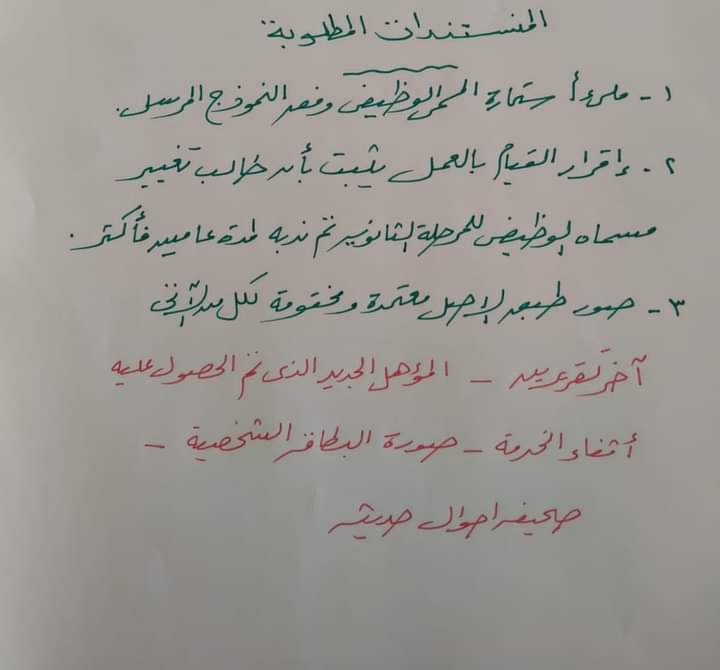 المستندات المطلوبة
١- ملئ أستمارة المسمى الوظيفى وفقد النموذج المرسل.
٢- إقرار القيام بالعمل يثبت بأن طالب تغيير
مسماه الوظيفى للمرحلة الثانوية تم ندبه لمدة عامين فأكثر.
٣- صور طبق الاصل معتمدة ومختومة لكل من الآتى
آخر تقريرين - المؤهل الجديد الذى تم الحصول عليه
أثناء الخدمة - صورة البطاقة الشخصية -
صحيفة احوال حديثة